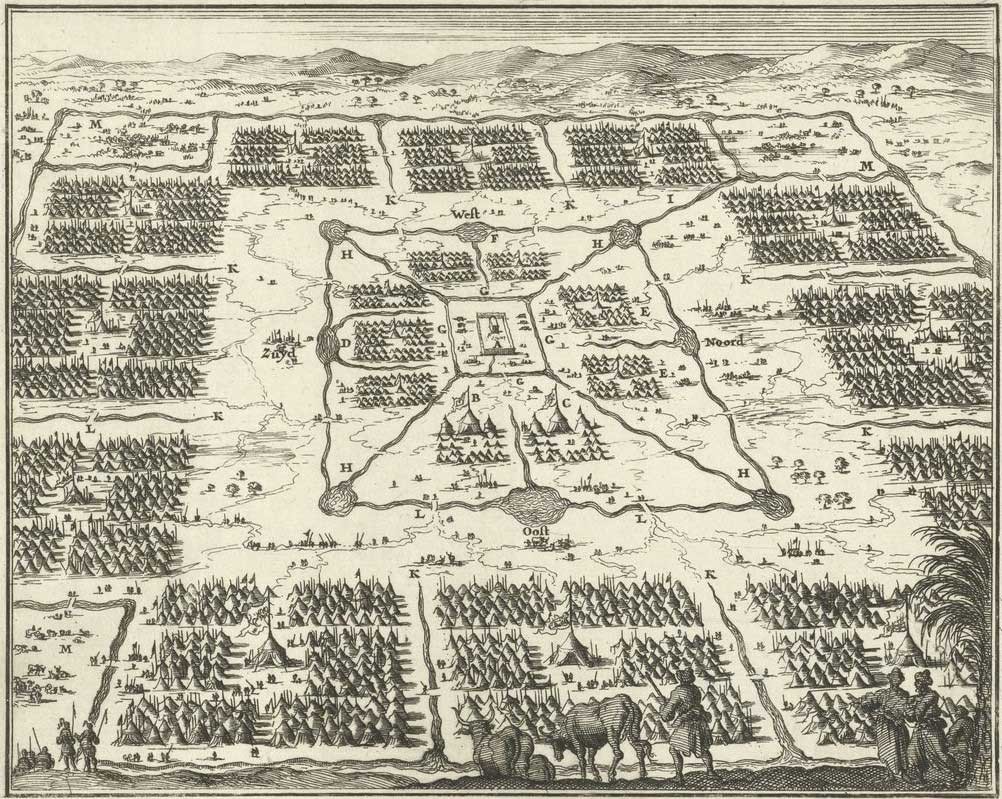 M
M
K
West
K
I
F
H
H
K
G
K
E
G
G
D
Zuyd
Noord
E
G
B
C
K
L
K
H
H
L
L
Oost
K
K
M